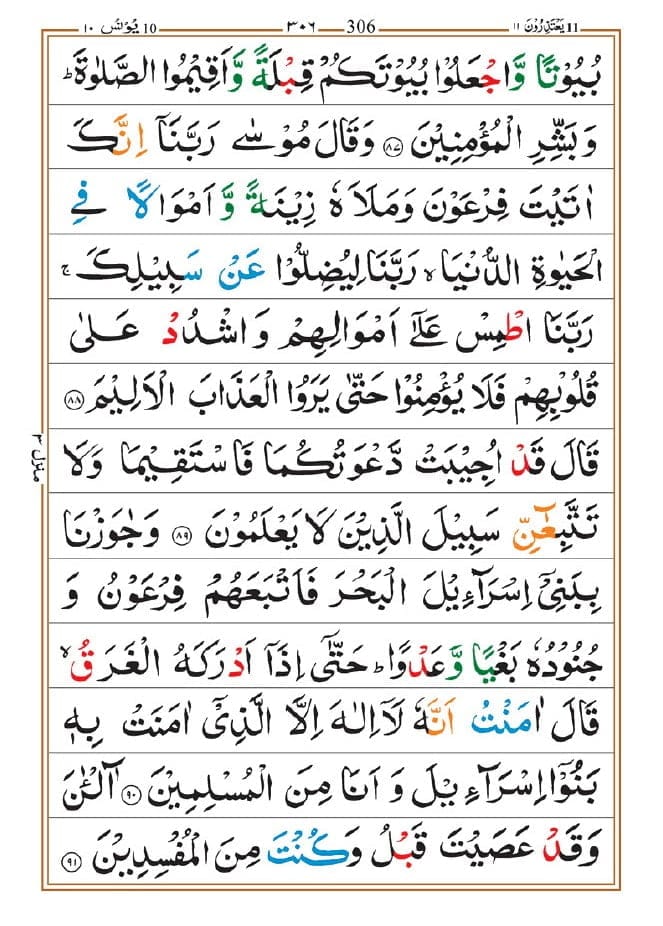 یَعْتَذِرُوْنَ ۱۱ 11 306 ۳۰۶ یُوْنُس ۱۰ 10
بُیُوْتًا وَّاجْعَلُوْا بُیُوْتَكُمْ قِبْلَةً وَّاَقِیْمُوا الصَّلٰوةَ ؕ
وَبَشِّرِ الْمُؤْمِنِیْنَ ﴿۸۷﴾ وَقَالَ مُوْسٰی رَبَّنَاۤ اِنَّكَ
اٰتَیْتَ فِرْعَوْنَ وَمَلَاَهٗ زِیْنَةً وَّ اَمْوَالًا فِی
الْحَیٰوةِ الدُّنْیَا ۙ رَبَّنَا لِیُضِلُّوْا عَنْ سَبِیْلِكَ ۚ
رَبَّنَا اطْمِسْ عَلٰۤی اَمْوَالِهِمْ وَاشْدُدْ عَلٰی
قُلُوْبِهِمْ فَلَا یُؤْمِنُوْا حَتّٰی یَرَوُا الْعَذَابَ الْاَلِیْمَ ﴿۸۸﴾
قَالَ قَدْ اُجِیْبَتْ دَّعْوَتُكُمَا فَاسْتَقِیْمَا وَلَا
تَتَّبِعٰٓنِّ سَبِیْلَ الَّذِیْنَ لَا یَعْلَمُوْنَ ﴿۸۹﴾ وَجٰوَزْنَا
بِبَنِیْۤ اِسْرَآءِیْلَ الْبَحْرَ فَاَتْبَعَهُمْ فِرْعَوْنُ وَ
جُنُوْدُهٗ بَغْیًا وَّعَدْوًا ؕ حَتّٰۤی اِذَاۤ اَدْرَكَهُ الْغَرَقُ ۙ
قَالَ اٰمَنْتُ اَنَّهٗ لَاۤ اِلٰهَ اِلَّا الَّذِیْۤ اٰمَنَتْ بِهٖ
بَنُوْۤا اِسْرَآءِیْلَ وَاَنَا مِنَ الْمُسْلِمِیْنَ ﴿۹۰﴾ آٰلْـٰٔنَ
وَقَدْ عَصَیْتَ قَبْلُ وَكُنْتَ مِنَ الْمُفْسِدِیْنَ ﴿۹۱﴾
منزل ۳